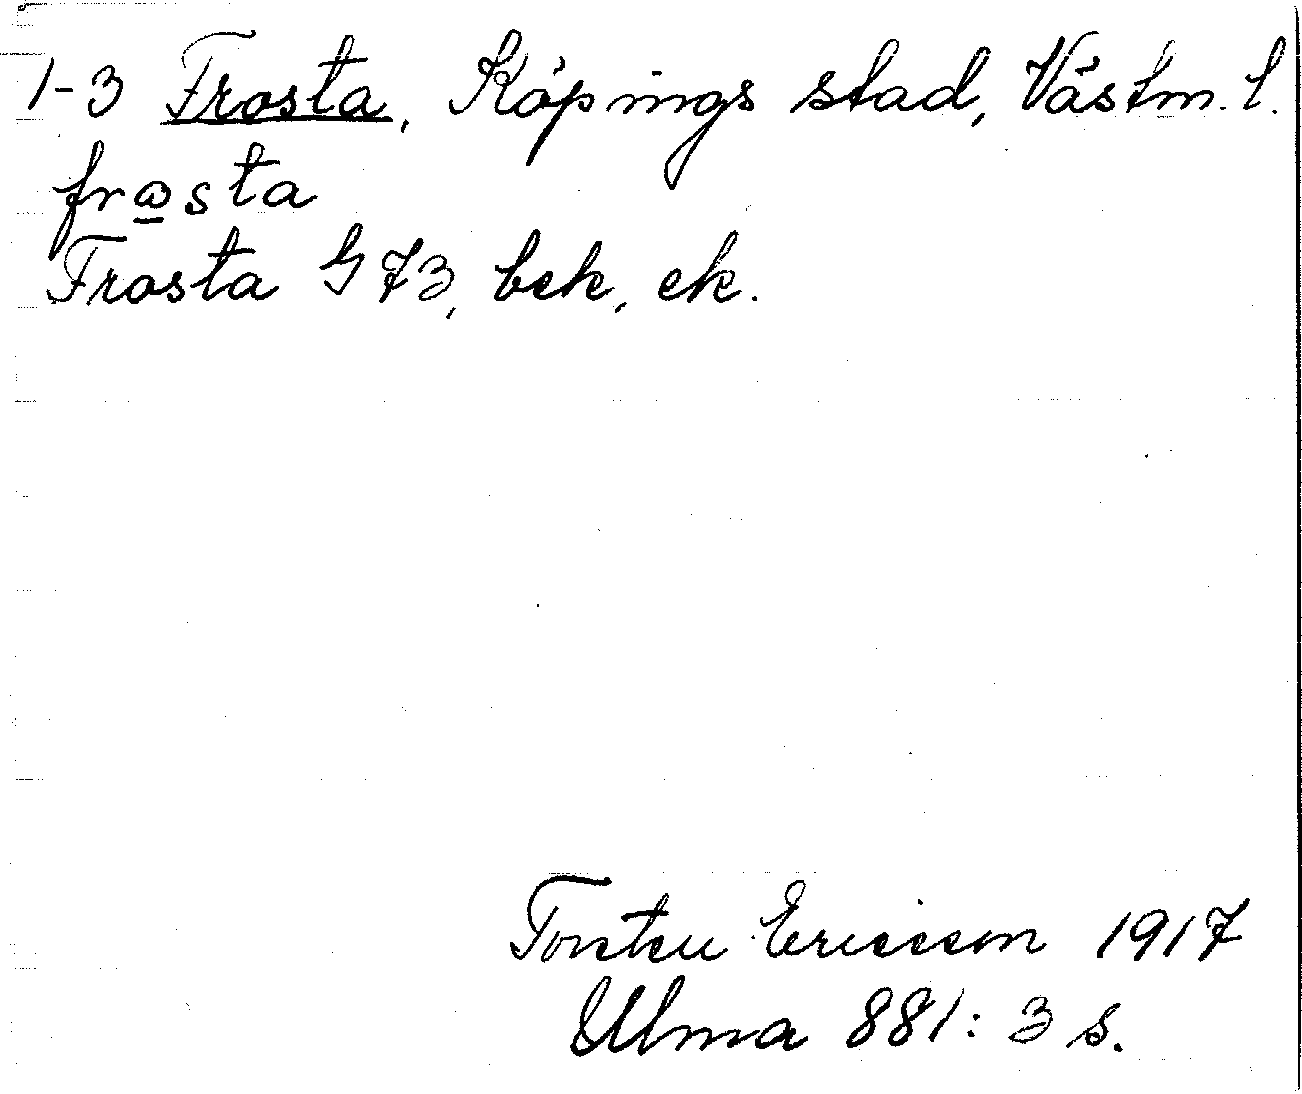 1-3 Frosta, Köpings stad, Västm. l.
frωsta
Frosta G 73, bek, ek.
Torsten Ericsson 1917
Ulma 881: 3 s.